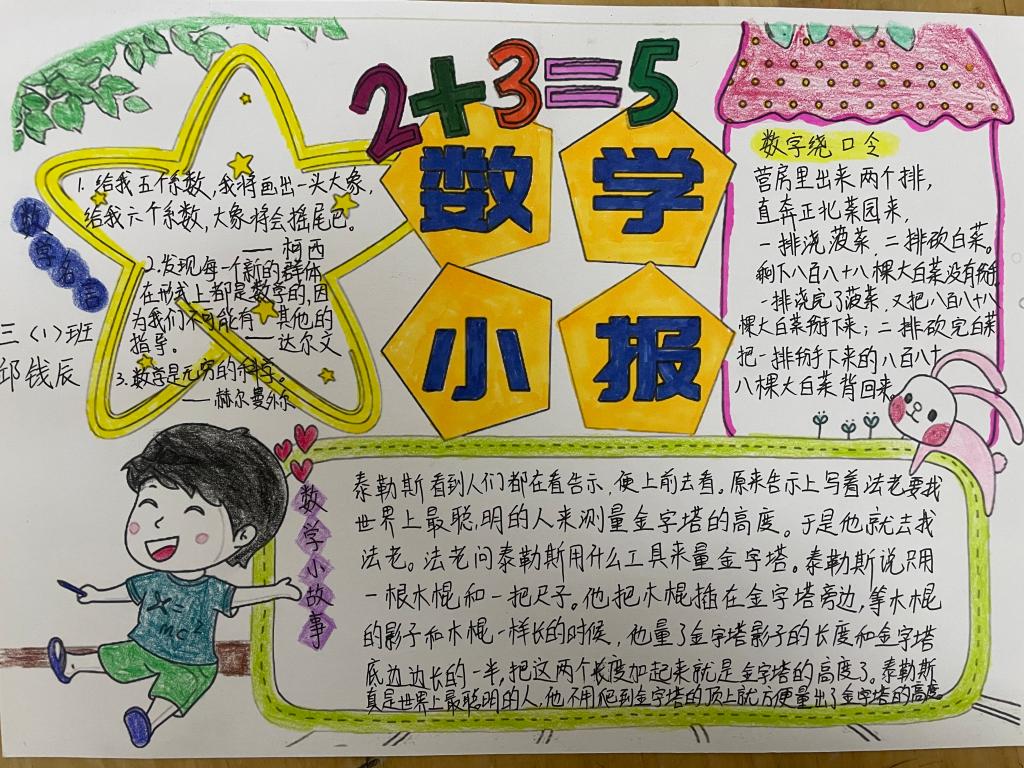 2+3=5
数学
小报
数学名言
1. 给我五个系数,我将画出一头大象,
给我六个系数,大象将会摇尾巴。
——柯西
2.发现每一个新的群体
在形式上都是数学的,因
为我们不可能有一其他的
指导。 ——达尔文
3.数学是无穷的科学。
——赫尔曼外尔
三(1)班
邱钱辰
数字绕口令
营房里出来两个排,
直奔正北菜园来,
一排浇菠菜,二排砍白菜。
剩下八百八十八棵大白菜没有掰
一排浇完了菠菜,又把八百八十八
棵大白菜掰下来;二排砍完白菜
把一排掰下来的八百八十
八棵大白菜背回来。
数学小故事
泰勒斯看到人们都在看告示,便上前去看。原来告示上写着法老要找
世界上最聪明的人来测量金字塔的高度。于是他就去找
法老。法老问泰勒斯用什么工具来量金字塔。泰勒斯说只用
一根木棍和一把尺子。他把木棍插在金字塔旁边,等木棍
的影子和木棍一样长的时候,他量了金字塔影子的长度和金字塔
底边边长的一半,把这两个长度加起来就是金字塔的高度了。泰勒斯
真是世界上最聪明的人,他不用爬到金字塔的顶上就方便量出了金字塔的高度。